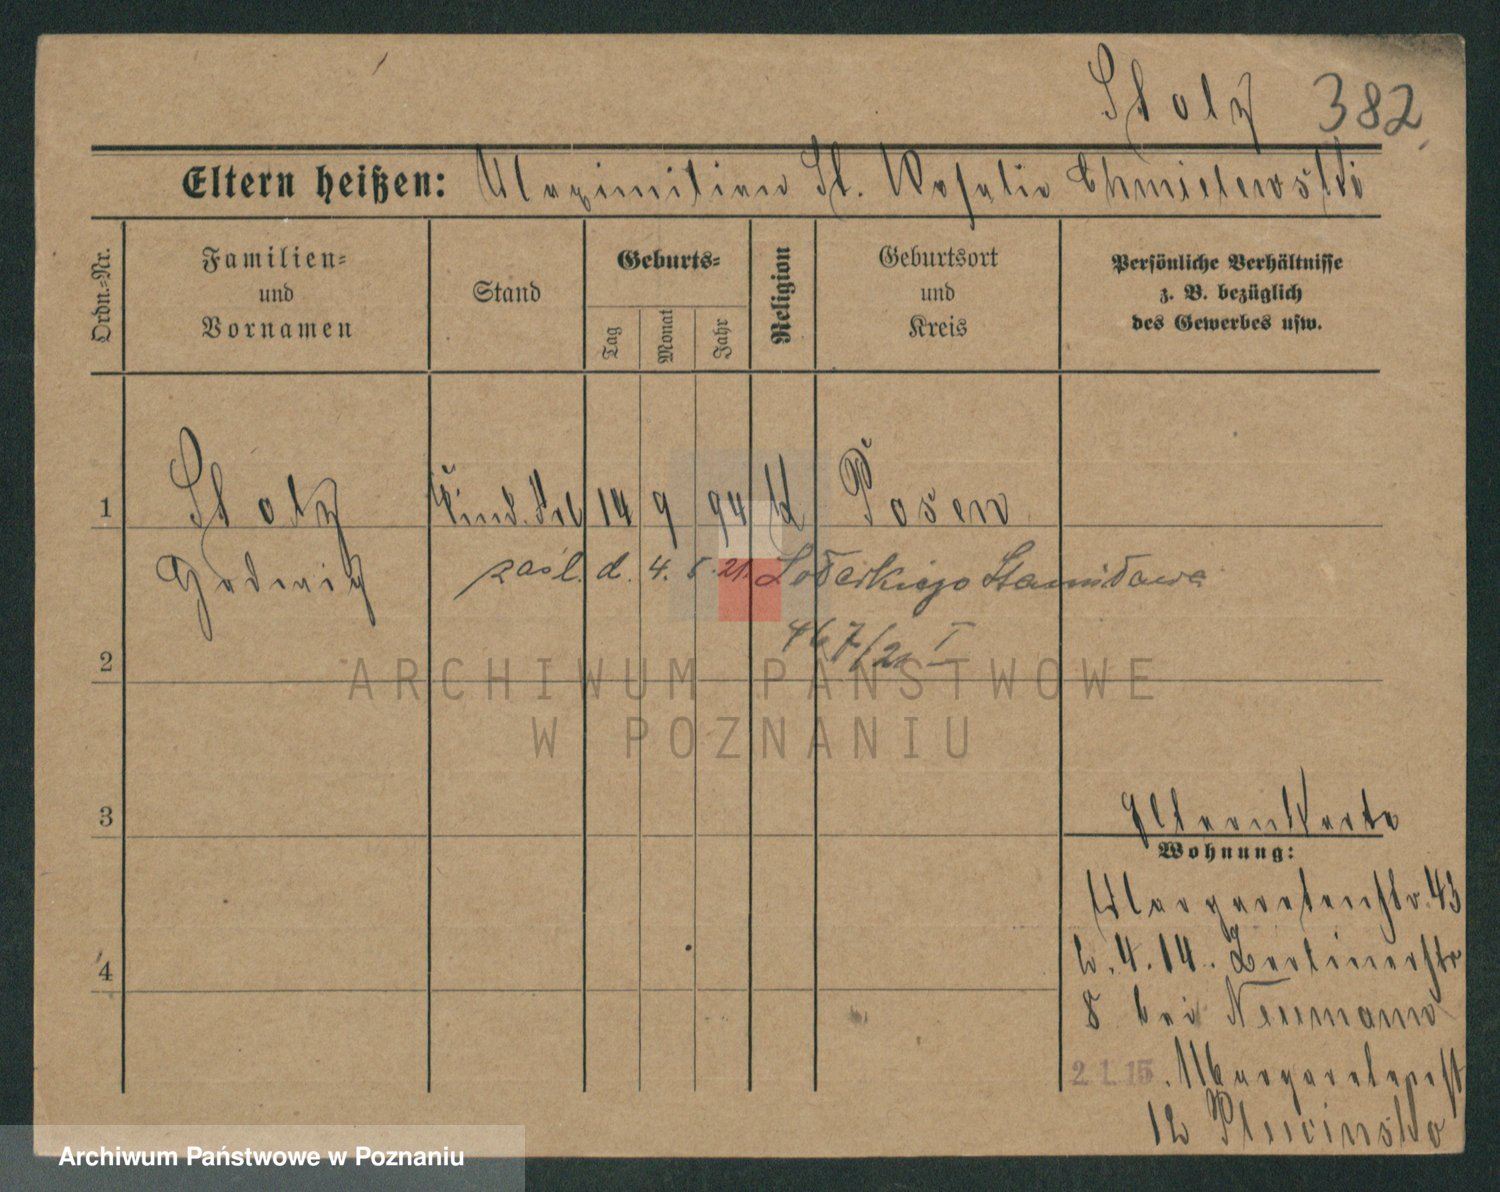 Stolz 382
Eltern heißen: Maximilian St. Rosalie Chmielewski
Ordn.=Nr.
Familien=
und
Vornamen
Stand
Geburts=
Tag
Monat
Jahr
Religion
Geburtsort
und
Kreis
Persönliche Verhältnisse
z. B. bezüglich
des Gewerbes usw.
1 Stolz Kind. Frl 14 9 94 k Posen
Hedwig zaśl. d. 4. 5. 21. Stanisława
467/21 I
2
ARCHIWUM PAŃSTWOWE
W POZNANIU
3
Elternkarte
Wohnung:
Margaretenstr. 43
2. 4. 14. Berlinerstr
8 bei Neumann
4
2.1.15. Margaretenst
12
Archiwum Państwowe w Poznaniu